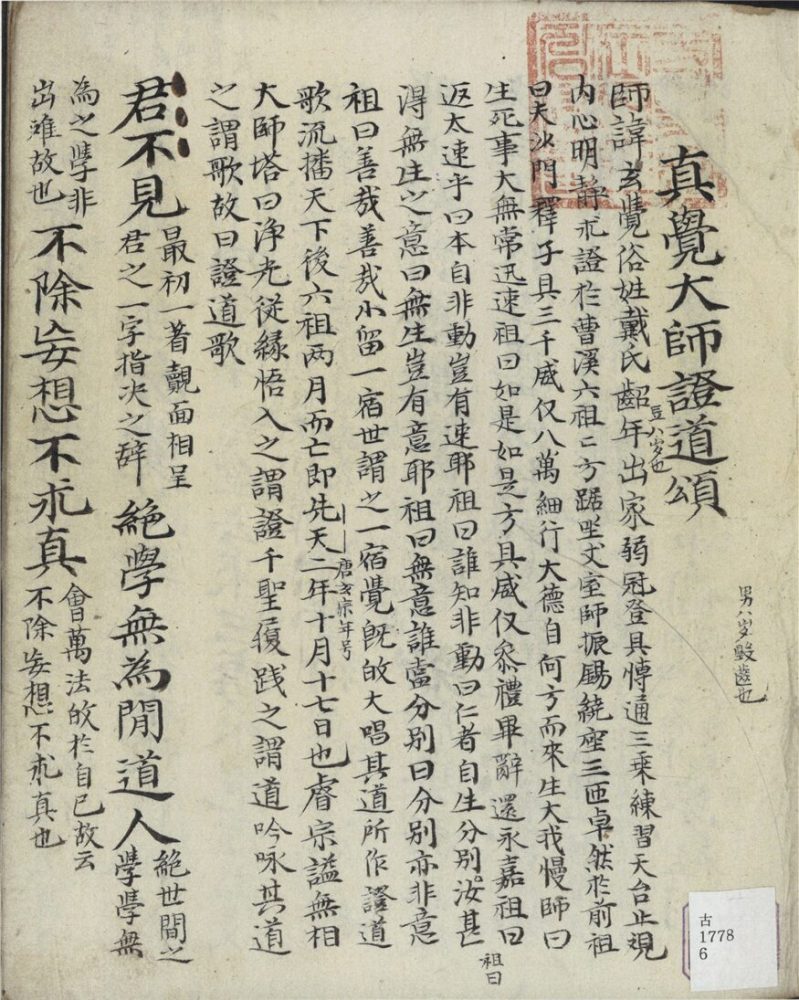 真覺大師證道頌
男八岁毀齒也
師諱玄覺俗姓戴氏齠年出家弱冠登具愽通三乗練習天台止觀
八岁也
内心明静求證於曹溪六祖ニ方踞坐丈室師振錫繞座三匝卓然於前祖
曰夫沙門釋子具三千威仪八萬細行大德自何方而來生大我慢師曰
生死事大無常迅速祖曰如是如是方具威仪叅禮畢辭還永嘉祖曰
返太速乎曰本自非動豈有速耶祖曰誰知非動曰仁者自生分別汝甚
祖曰
得無生之意曰無生豈有意耶祖曰無意誰當分別曰分別亦非意
祖曰善哉善哉小留一宿世謂之一宿覺旣皈大唱其道所作證道
歌流播天下後六祖两月而亡即先天二年十月十七日也睿宗謚無相
唐玄宗年号
大師塔曰淨光從緣悟入之謂證千聖履践之謂道吟咏其道
之謂歌故曰證道歌
君不見
最初一著覿面相呈
君之一字指决之辞
絶學無為閒道人
絶世間之
學學無
為之學非
出離故也
不除妄想不求真
會萬法皈於自己故云
不除妄想不求真也
古
1778
6